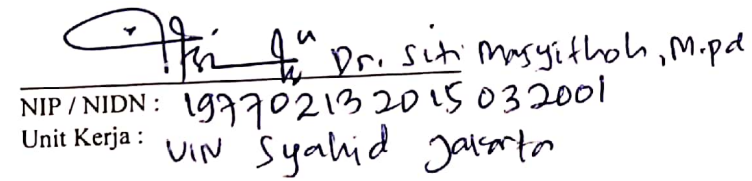 Dr. Siti Masyithoh, M.Pd
NIP / NIDN : 19770213 2015 032001
Unit Kerja : UIN Syahid Jakarta